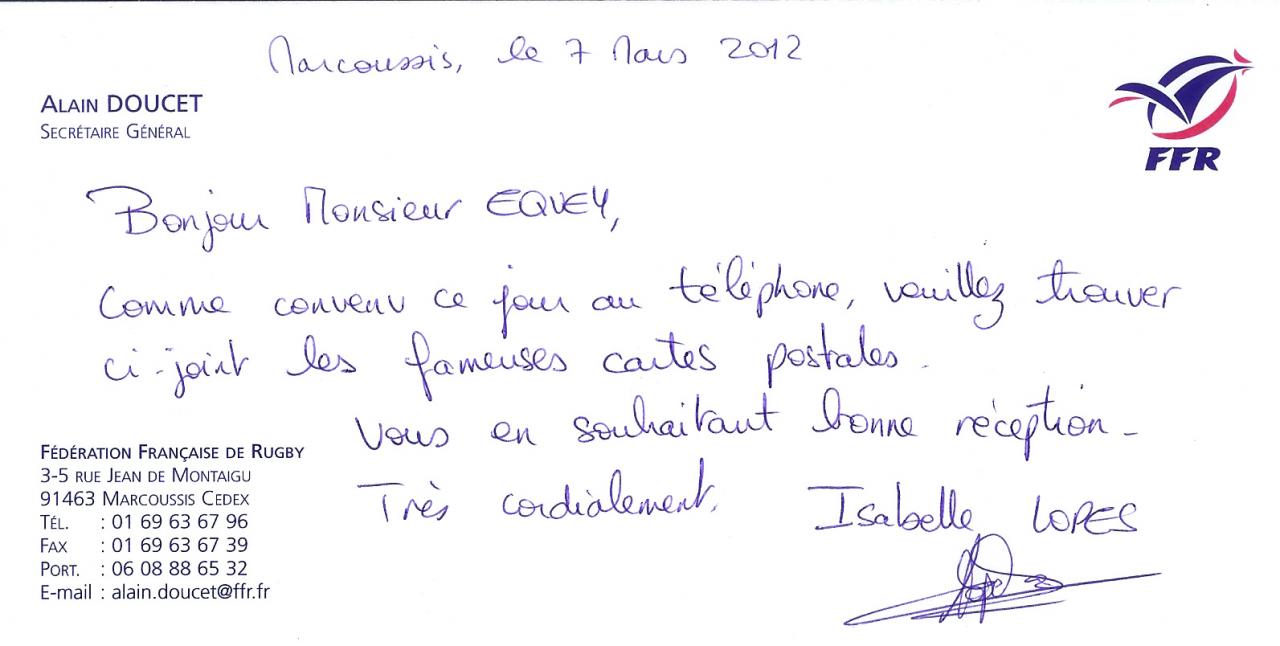 Marcoussis, le 7 Mars 2012
ALAIN DOUCET
SECRÉTAIRE GÉNÉRAL
FFR
Bonjour Monsieur EQVEY,
Comme convenu ce jour au téléphone, veuillez trouver
ci-joint les fameuses cartes postales.
Vous en souhaitant bonne réception -
Très cordialement. Isabelle LOPES
FÉDÉRATION FRANÇAISE DE RUGBY
3-5 RUE JEAN DE MONTAIGU
91463 MARCOUSSIS CEDEX
TÉL. : 01 69 63 67 96
FAX : 01 69 63 67 39
PORT. : 06 08 88 65 32
E-mail : alain.doucet@ffr.fr